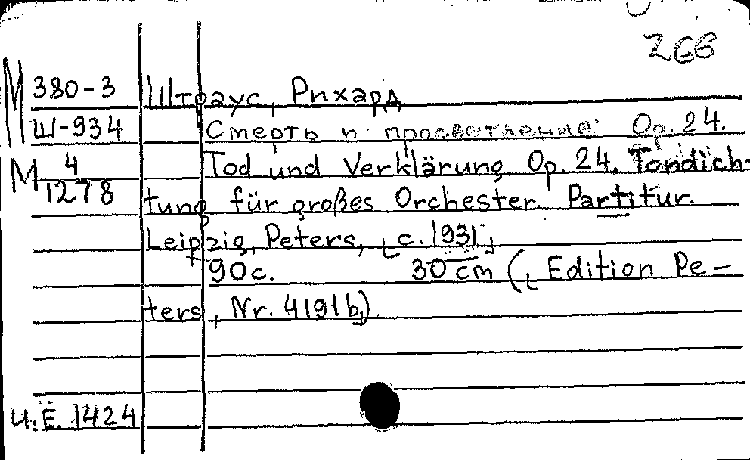 266
М 380-3 Штраус, Рихард
Ш-934 Смерть и просветление. Op. 24.
М 4 Tod und Verklärung Op. 24. Tondich-
1278 tung für großes Orchester. Partitur.
Leipzig, Peters, [c. 1931]
90c. 30 cm ([Edition Pe-
ters, Nr. 4191b)
И.Ё. 1424